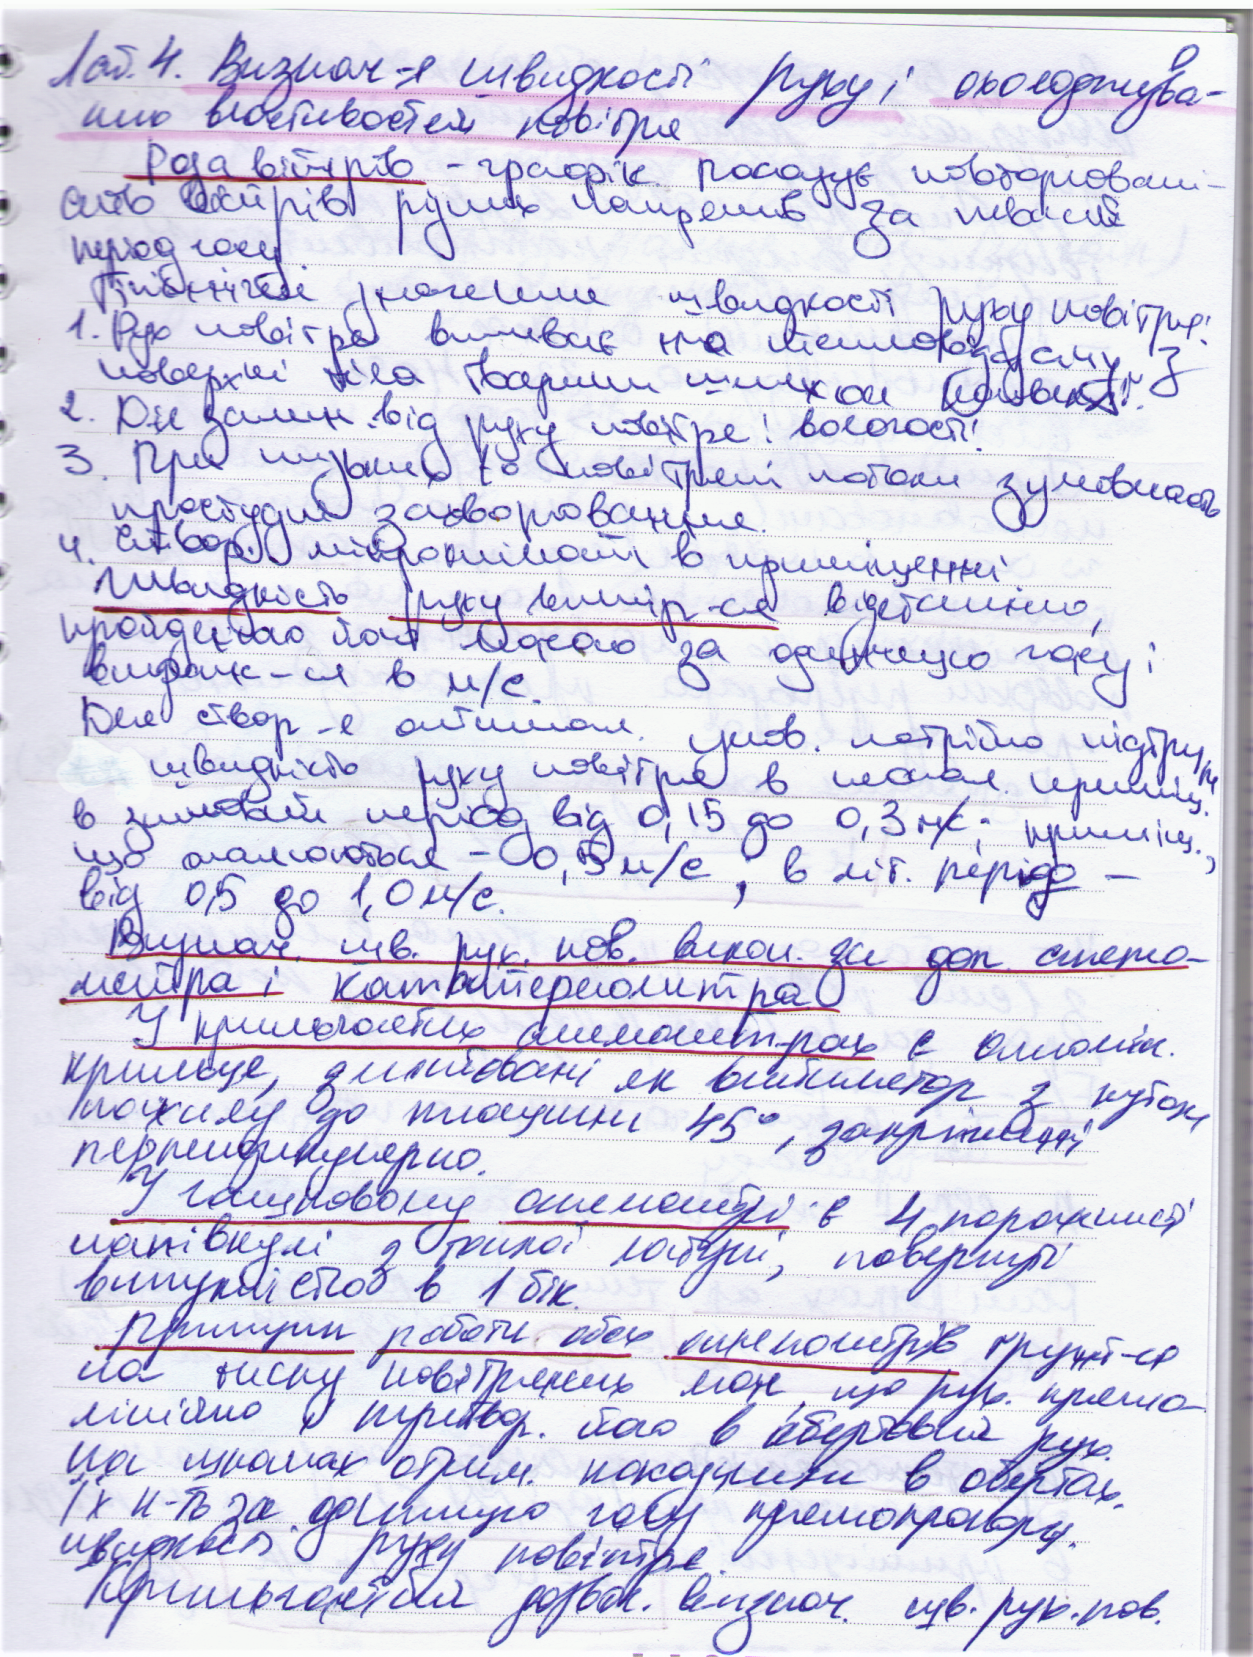 Лаб. 4. Визнач-я швидкості руху і охолоджува-
них властивостей повітря
Роза вітрів - графік показує повторювані-
сть вітрів різних напрямів за певний
період часу
Гігієнічне значення швидкості руху повітря:
1. Рух повітря впливає на тепловіддачу з
поверхні тіла тварини шляхом конвекції.
2. Дія залеж. від руху повітря і вологості
3. При низьких t° повітряні потоки зумовлюють
простудні захворювання.
4. Створ. мікроклімат в приміщенні
Швидкість руху вимір-ся відстанню,
пройденою його масою за одиницю часу і
вираж-ся в м/с.
Для створ-я оптимал. умов. потрібно підтрим
швидкість руху повітря в приміщ.
в зимовий період від 0,15 до 0,3 м/с; приміщ.,
що опалюються - 0,5 м/с, в літ. період -
від 0,5 до 1,0 м/с.
Визнач. шв. рух. пов. викон. за доп. анемо-
метра і кататермометра
У крильчастих анемометрах є алюмін.
крильця, змонтовані як вентилятор з кутом
нахилу до площини 45°, закріплені
перпендикулярно.
У чашковому анемометрі є 4 порожнисті
півкулі з тонкої латуні, повернуті
випуклістю в 1 бік.
Принцип роботи обох анемометрів ґрунт-ся
на тиску повітряних мас, що рух. прямо-
лінійно і перетвор. його в обертовий рух.
На шкалах отрим. показники в обертах.
Їх к-ть за одиницю часу прямопропорц.
швидкості руху повітря.
Крильчастий дозвол. визнач. шв. рух. пов.